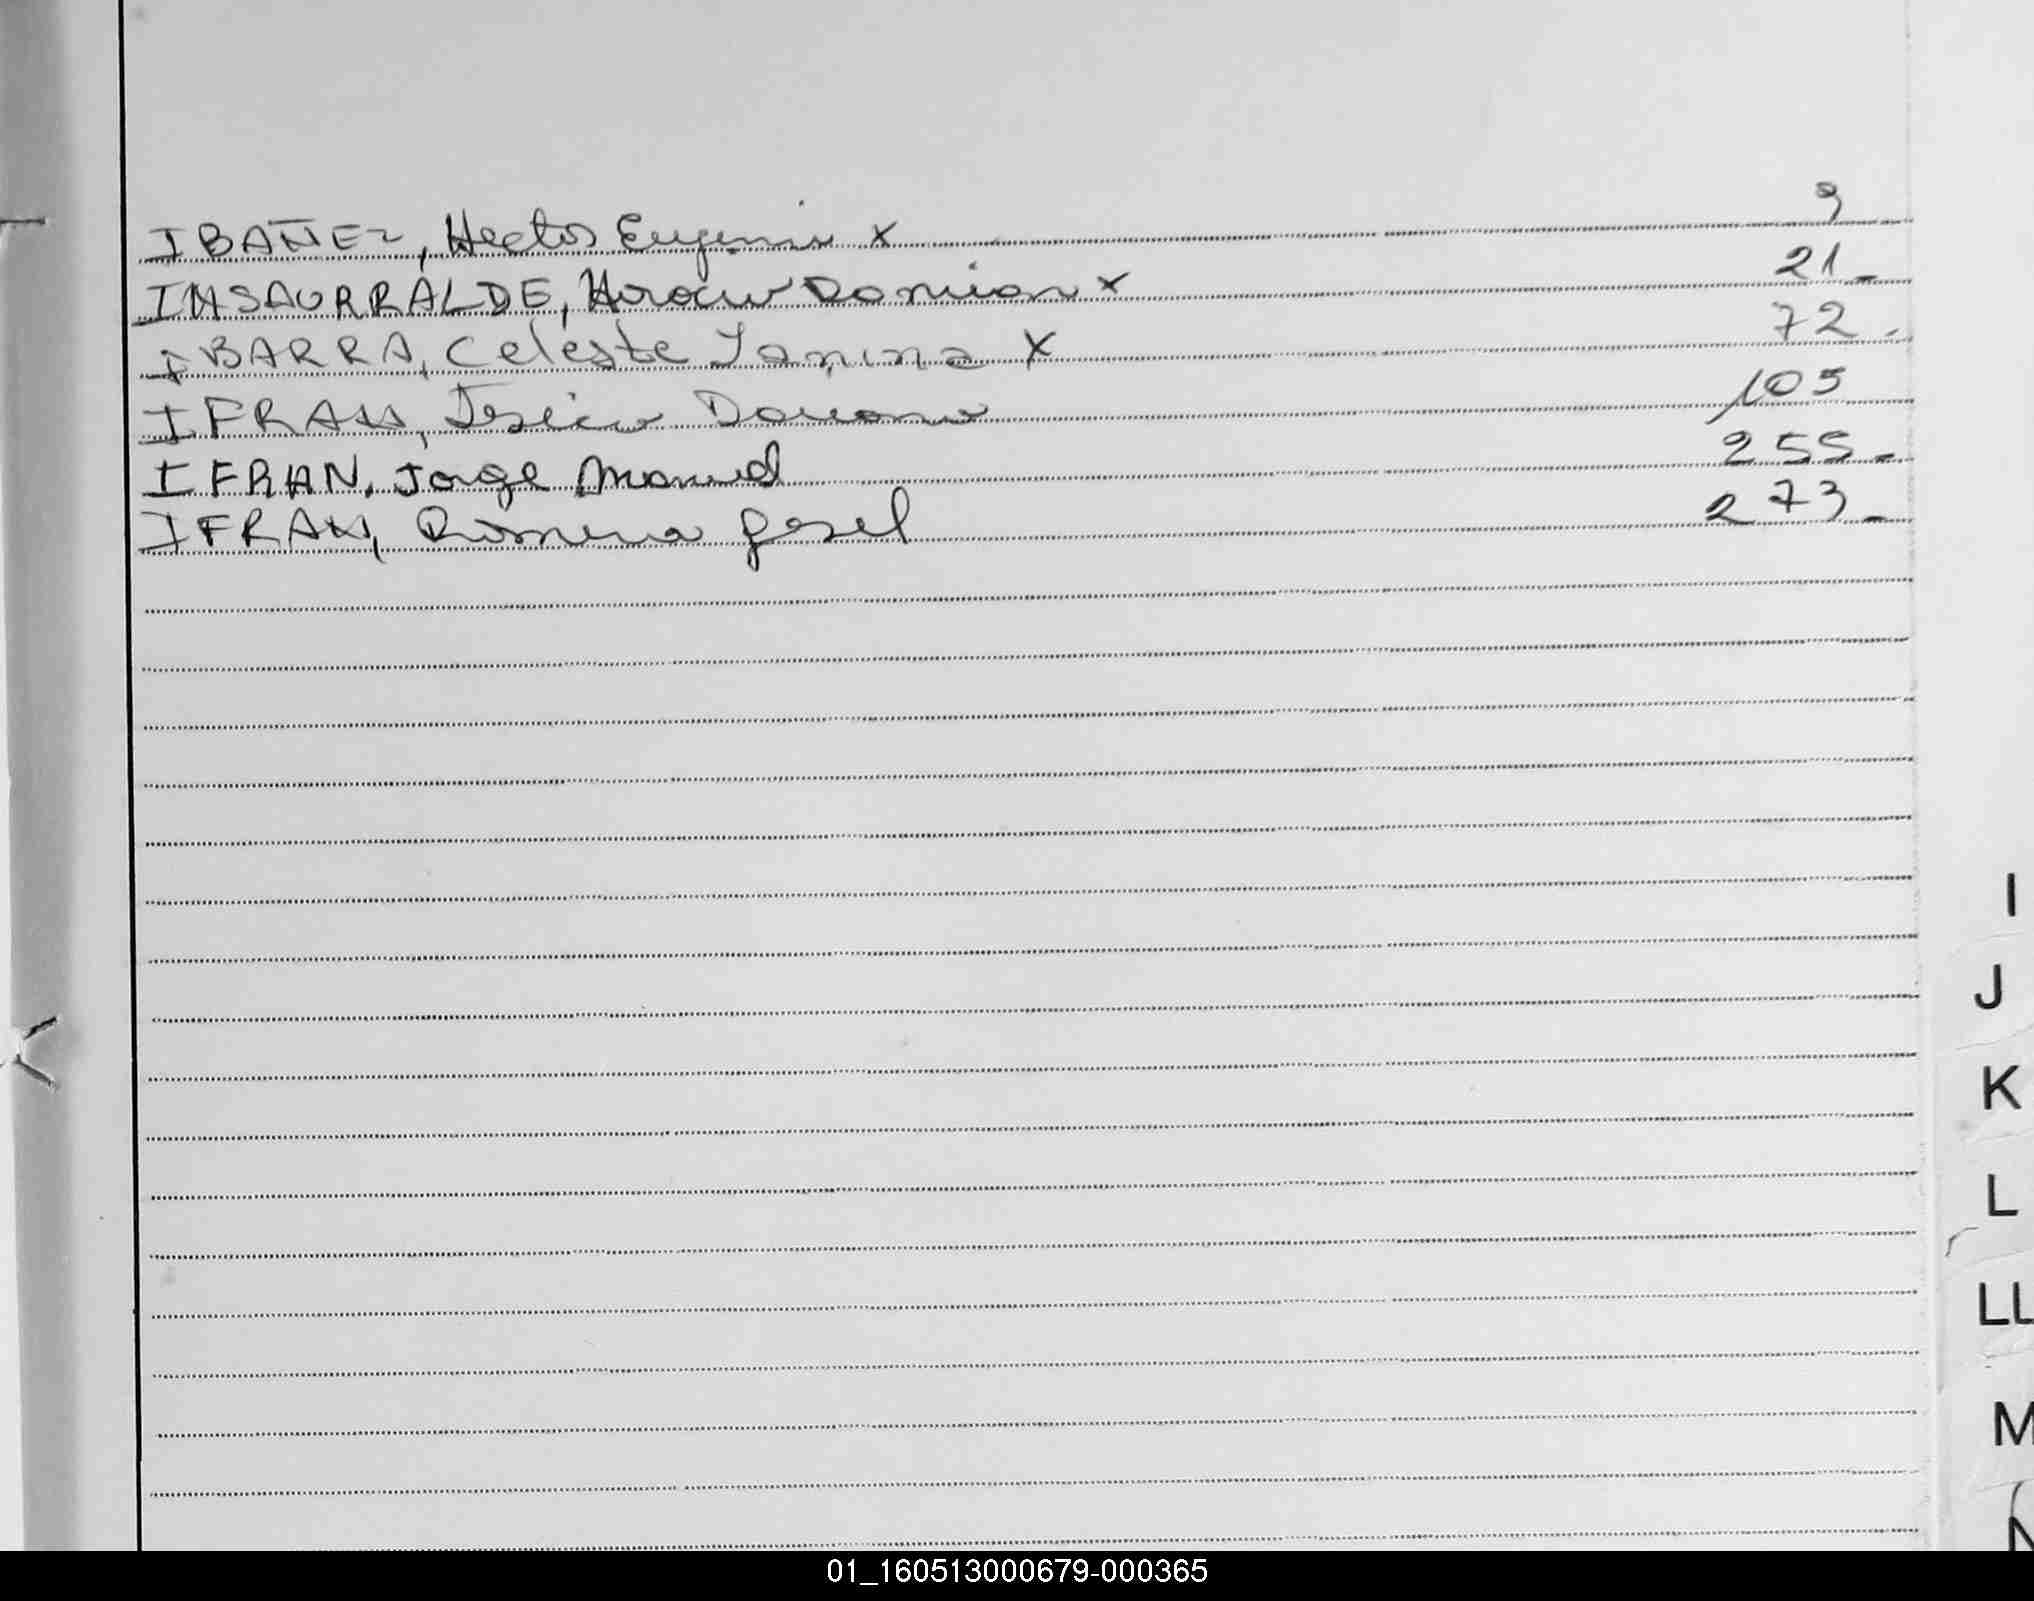 IBAÑEZ, Hector Eugenio x 9
INSAURRALDE, Damian x 21-
IBARRA, Celeste Yanina X 72.
IFRAN, 105
IFRAN, Jorge Manuel 255-
IFRAN, Romina Gesel 273-
I
J
K
L
LL
M
N
01_160513000679-000365